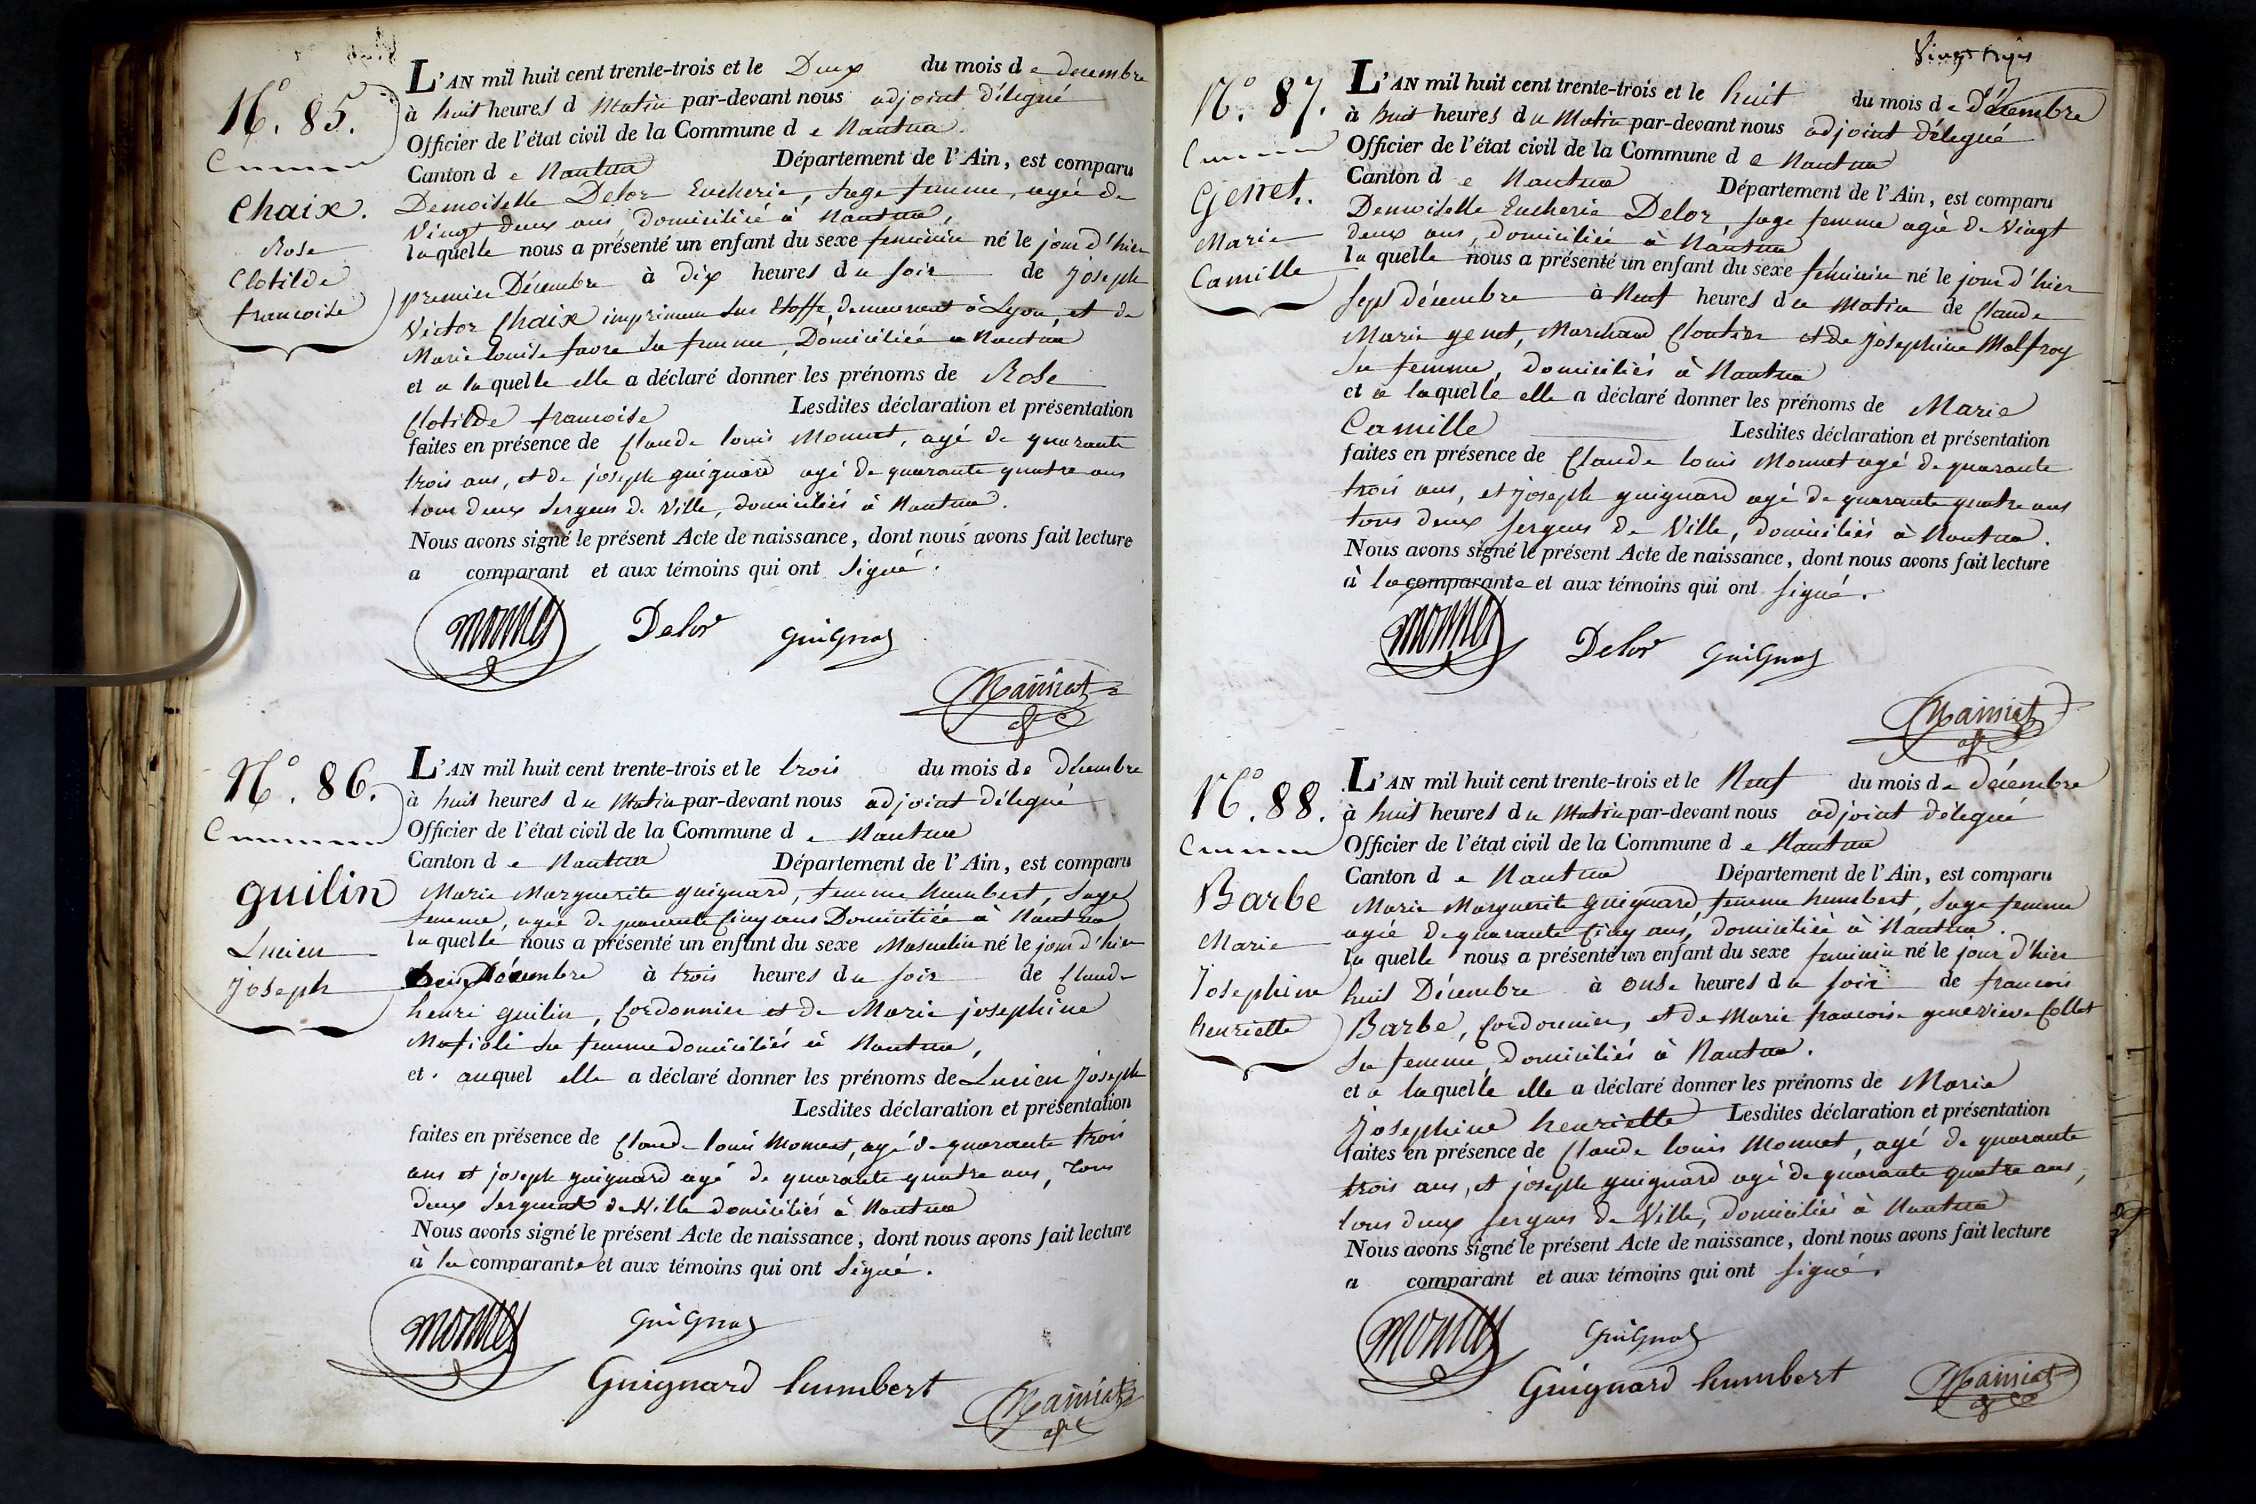 N.° 85.
Chaix.
Rose
Clotilde
francoise
L'AN mil huit cent trente-trois et le Deux du mois de decembre
à huit heures d Matin par-devant nous adjoint délegué
Officier de l'état civil de la Commune de Nantua
Canton de Nantua Département de l'Ain, est comparu
Demoiselle Delor Eucherie, sage femme, agée de
Vingt deux ans domiciliée à Nantua,
laquelle nous a présenté un enfant du sexe feminin né le jour d'hier
premier Décembre à dix heures du soir de Joseph
Victor Chaix imprimeur sur Etoffe, demeurant à Lyon et de
Marie louise favre sa femme, Domiciliée a Nantua
et a laquelle elle a déclaré donner les prénoms de Rose
Clotilde francoise Lesdites déclaration et présentation
faites en présence de Claude louis Monnet, agé de quarante
trois ans, et de joseph guignard agé de quarante quatre ans
tous deux sergens de Ville, domiciliés à Nantua.
Nous avons signé le présent Acte de naissance, dont nous avons fait lecture
a comparant et aux témoins qui ont Signé.
monnet Delor Guignad
N.° 86.
guilin
Lucien
joseph
L'AN mil huit cent trente-trois et le trois du mois de Décembre
à huit heures du Matin par-devant nous adjoint délegué
Officier de l'état civil de la Commune de Nantua
Canton de Nantua Département de l'Ain, est comparu
Marie Marguerite guignard, femme humbert, Sage
femme, agée de quarante Cinq ans Domiciliée à Nantua
laquelle nous a présenté un enfant du sexe Masculin né le jour d'hier
Décembre à trois heures du soir de Claude
henri guilin, Cordonnier et de Marie josephine
Mafioli sa femme domiciliés à Nantua,
et auquel elle a déclaré donner les prénoms de Lucien Joseph
Lesdites déclaration et présentation
faites en présence de Claude louis Monnet, agé de quarante trois
ans et joseph guignard agé de quarante quatre ans, tous
deux Sergents de Ville domiciliés à Nantua
Nous avons signé le présent Acte de naissance, dont nous avons fait lecture
à la comparante et aux témoins qui ont Signé.
monnet Guignad
Guignard humbert
N.° 87.
Genet.
Marie
Camille
L'AN mil huit cent trente-trois et le huit du mois de Décembre
à huit heures du Matin par-devant nous adjoint délegué
Officier de l'état civil de la Commune de Nantua
Canton de Nantua Département de l'Ain, est comparu
Demoiselle Eucherie Delor sage femme agée de Vingt
deux ans, domiciliée à Nantua
laquelle nous a présenté un enfant du sexe féminin né le jour d'hier
sept décembre à Neuf heures du Matin de Claude
Marie genet, Marchand Cloutier et de Josephine Malfroy
sa femme, domiciliés à Nantua
et a laquelle elle a déclaré donner les prénoms de Marie
Camille Lesdites déclaration et présentation
faites en présence de Claude louis Monnet agé de quarante
trois ans, et joseph guignard agé de quarante quatre ans
tous deux sergens de Ville, domiciliés à Nantua.
Nous avons signé le présent Acte de naissance, dont nous avons fait lecture
à la comparante et aux témoins qui ont signé.
monnet Delor Guignad
N.° 88.
Barbe
Marie
Josephine
henriette
L'AN mil huit cent trente-trois et le Neuf du mois de Décembre
à huit heures du Matin par-devant nous adjoint délegué
Officier de l'état civil de la Commune de Nantua
Canton de Nantua Département de l'Ain, est comparu
Marie Marguerite guignard, femme humbert, sage femme
agée de quarante Cinq ans, domiciliée à Nantua.
la quelle nous a présenté un enfant du sexe feminin né le jour d'hier
huit Décembre à onse heures du soir de francois
Barbe, Cordonnier, et de Marie francoise genevieve Collet
sa femme, domiciliés à Nantua.
et a laquelle elle a déclaré donner les prénoms de Marie
Josephine henriette Lesdites déclaration et présentation
faites en présence de Claude louis Monnet, agé de quarante
trois ans, et joseph guignard agé de quarante quatre ans,
tous deux sergens de Ville, domiciliés à Nantua
Nous avons signé le présent Acte de naissance, dont nous avons fait lecture
a comparant et aux témoins qui ont signé.
monnet Guignad
Guignard humbert